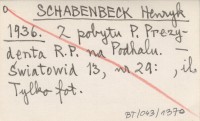 SCHABENBECK Henryk
1936. Z pobytu P. Prezy-
denta R.P. na Podhalu. —
Światowid 13, nr 29: , il.
Tylko fot.
BT/043/1370